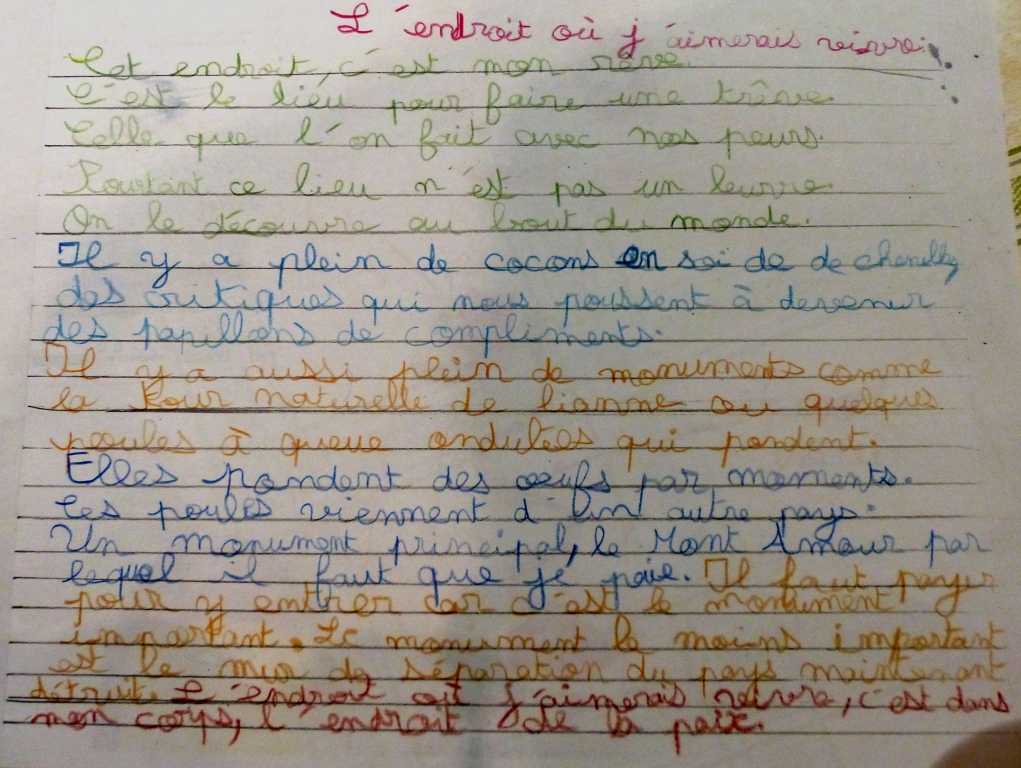 L'endroit où j'aimerais vivre.
Cet endroit, c'est mon rêve.
C'est le lieu pour faire une trêve.
Celle que l'on fait avec nos peurs.
Pourtant ce lieu n'est pas un leurre.
On le découvre au bout du monde.
Il y a plein de cocons en soi de de chenilles
des critiques qui nous poussent à devenir
des papillons de compliments.
Il y a aussi plein de monuments comme
la Tour naturelle de lianne ou quelques
poules à queue ondulées qui pondent.
Elles pondent des œufs par moments.
Les poules viennent d'un autre pays.
Un monument principal, le Mont Amour par
lequel il faut que je paie. Il faut payer
pour y entrer car c'est le monument
important. Le monument le moins important
est le mur de séparation du pays maintenant
détruit. L'endroit où j'aimerais vivre, c'est dans
mon corps, l'endroit de la paix.